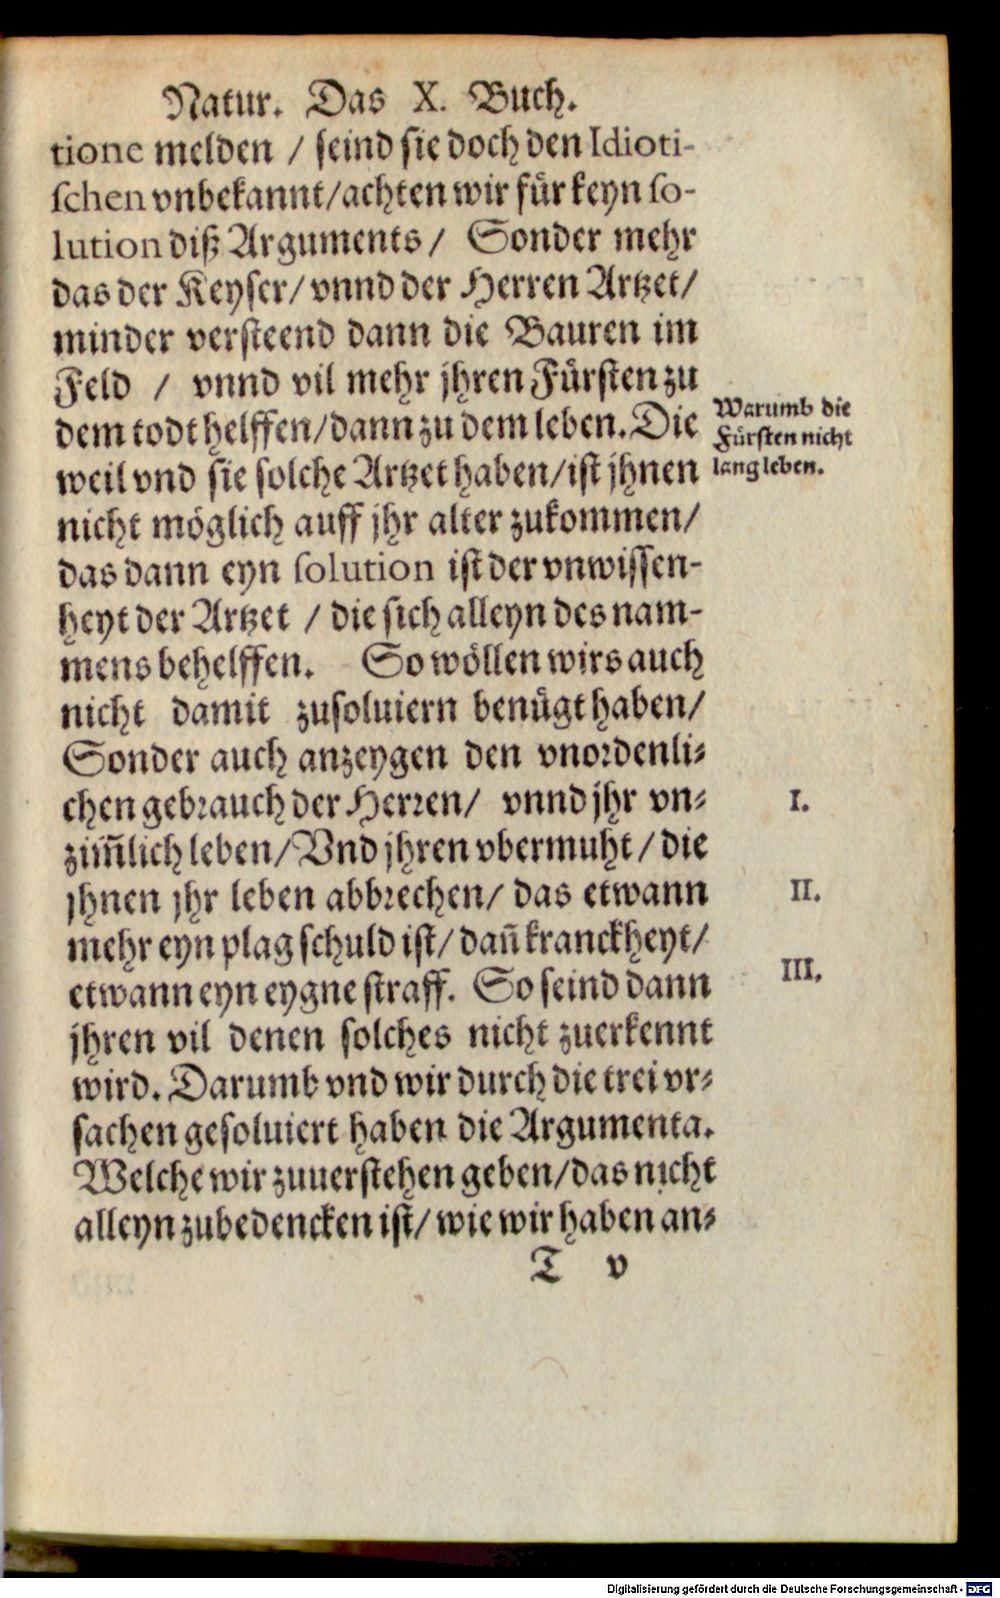 Natur. Das X. Buch.
tione melden / seind sie doch den Idioti-
schen vnbekannt/achten wir fůr keyn so-
lution diß Arguments/ Sonder mehr
das der Keyser/ vnnd der Herren Artzet/
minder versteend dann die Bauren im
Feld / vnnd vil mehr jhren Fůrsten zu
dem todt helffen/dann zu dem leben. Die
weil vnd sie solche Artzet haben/ist jhnen
nicht möglich auff jhr alter zukommen/
das dann eyn solution ist der vnwissen-
heyt der Artzet / die sich alleyn des nam-
mens behelffen. So wöllen wirs auch
nicht damit zusoluiern benůgt haben/
Sonder auch anzeygen den vnordenli-
chen gebrauch der Herren/ vnnd jhr vn-
zim̃lich leben/Vnd jhren vbermuht/die
jhnen jhr leben abbrechen/ das etwann
mehr eyn plag schuld ist/ dañ kranckheyt/
etwann eyn eygne straff. So seind dann
jhren vil denen solches nicht zuerkennt
wird. Darumb vnd wir durch die trei vr-
sachen gesoluiert haben die Argumenta.
Welche wir zuuerstehen geben/das nicht
alleyn zubedencken ist/ wie wir haben an-
T v
Warumb die
Fůrsten nicht
lang leben.
I.
II.
III.
Digitalisierung gefördert durch die Deutsche Forschungsgemeinschaft - DFG